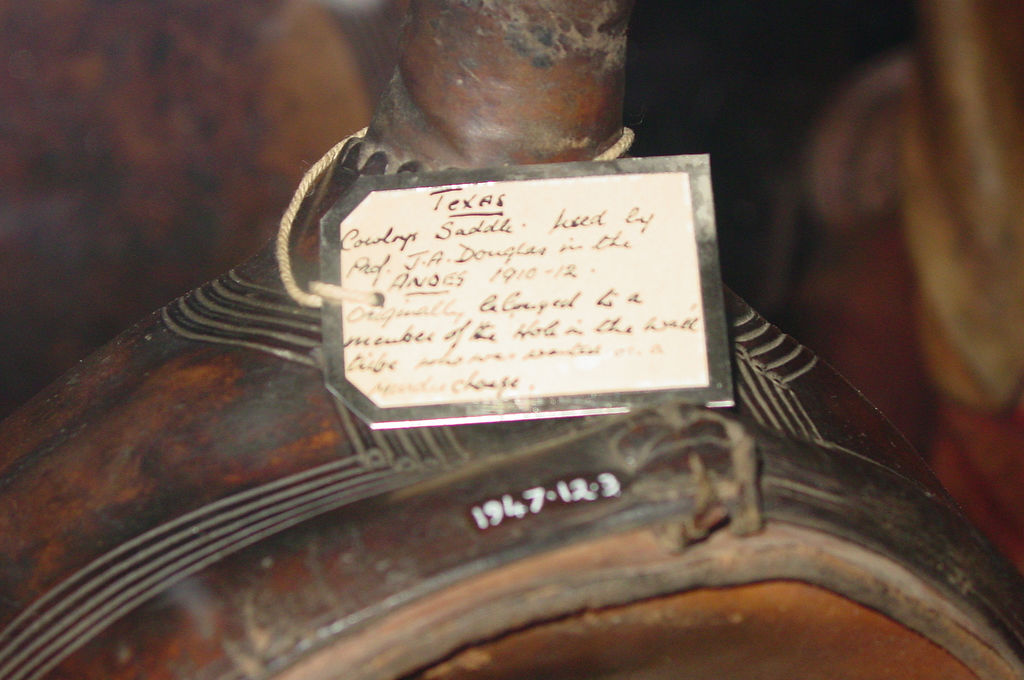 TEXAS
Cowboys Saddle. Used by
Prof. J.A. Douglas in the
ANDES 1910-12.
Originally belonged to a
member of the Hole in the Wall
tribe who was wanted on a
murder charge.
1947.12.3